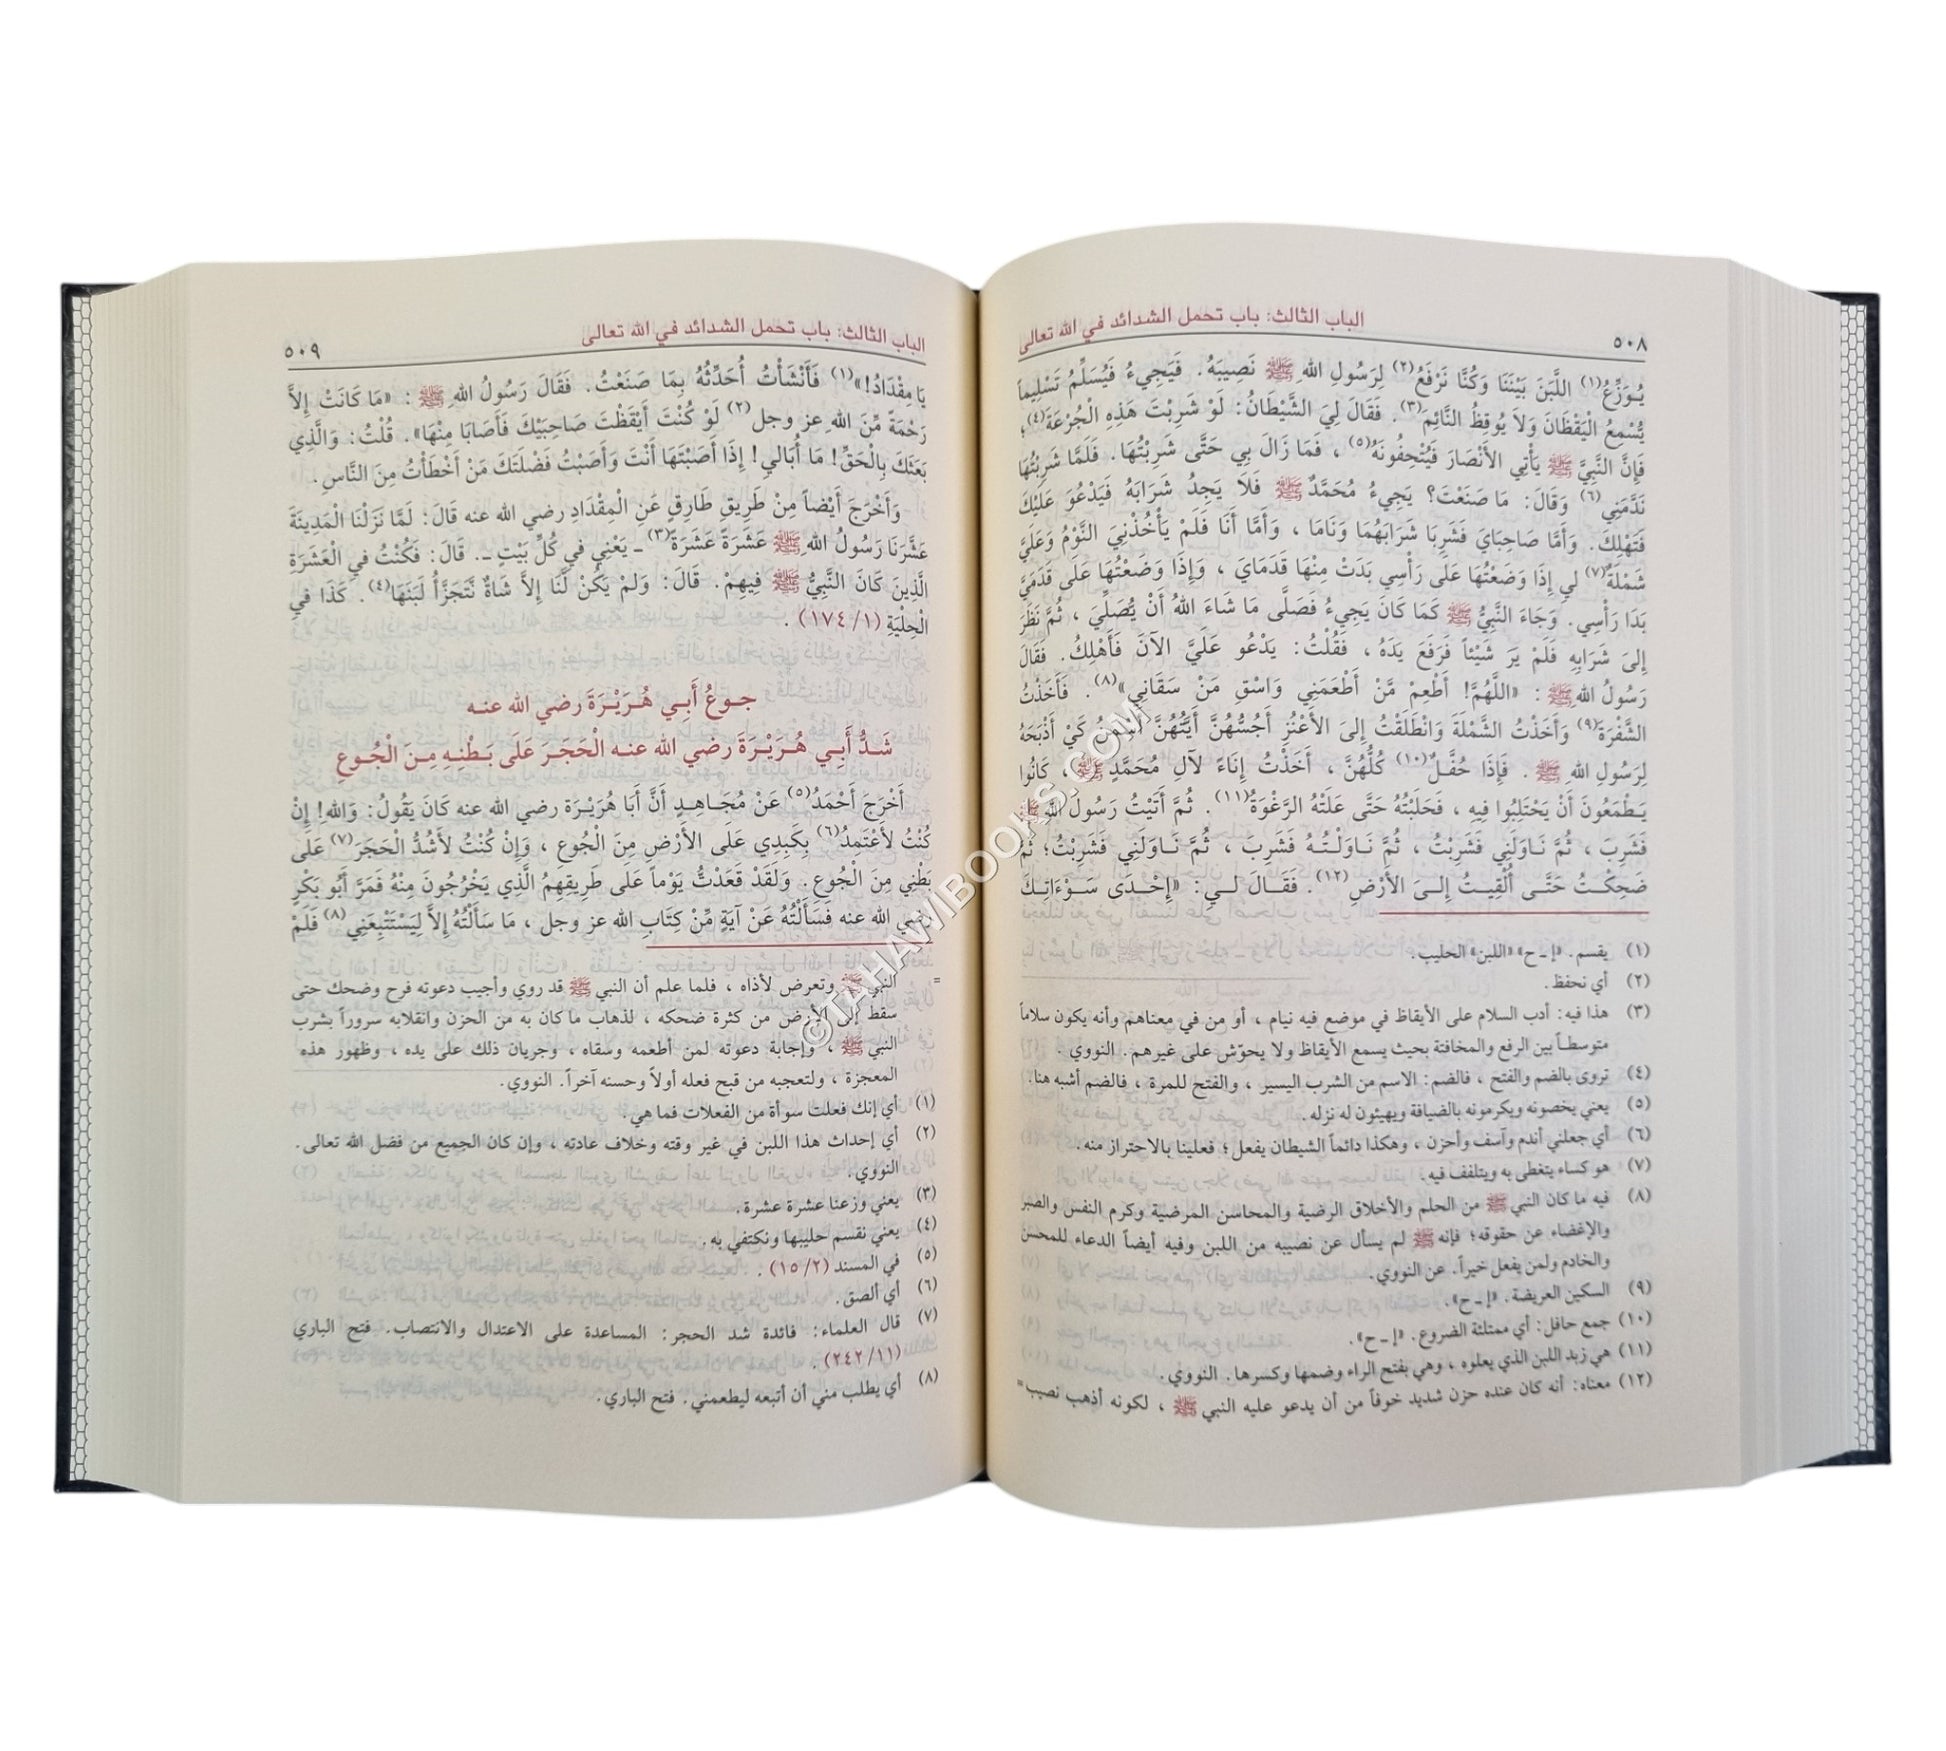 ٥٠٨ الباب الثالث: باب تحمل الشدائد في الله تعالى
يُوَزِّعُ(١) اللَّبَنَ بَيْنَنَا وَكُنَّا نَرْفَعُ(٢) لِرَسُولِ اللهِ ﷺ نَصِيبَهُ. فَيَجِيءُ فَيُسَلِّمُ تَسْلِيماً
يُسْمِعُ الْيَقْظَانَ وَلاَ يُوقِظُ النَّائِمَ(٣). فَقَالَ لِيَ الشَّيْطَانُ: لَوْ شَرِبْتَ هَذِهِ الْجُرْعَةَ(٤)؛
فَإِنَّ النَّبِيَّ ﷺ يَأْتِي الأَنْصَارَ فَيُتْحِفُونَهُ(٥)، فَمَا زَالَ بِي حَتَّى شَرِبْتُهَا. فَلَمَّا شَرِبْتُهَا
نَدَّمَنِي(٦) وَقَالَ: مَا صَنَعْتَ؟ يَجِيءُ مُحَمَّدٌ ﷺ فَلاَ يَجِدُ شَرَابَهُ فَيَدْعُوَ عَلَيْكَ
فَتَهْلِكَ. وَأَمَّا صَاحِبَايَ فَشَرِبَا شَرَابَهُمَا وَنَامَا، وَأَمَّا أَنَا فَلَمْ يَأْخُذْنِيَ النَّوْمُ وَعَلَيَّ
شَمْلَةٌ(٧) لِي إِذَا وَضَعْتُهَا عَلَى رَأْسِي بَدَتْ مِنْهَا قَدَمَايَ، وَإِذَا وَضَعْتُهَا عَلَى قَدَمَيَّ
بَدَا رَأْسِي. وَجَاءَ النَّبِيُّ ﷺ كَمَا كَانَ يَجِيءُ فَصَلَّى مَا شَاءَ اللهُ أَنْ يُّصَلِّيَ، ثُمَّ نَظَرَ
إِلىَ شَرَابِهِ فَلَمْ يَرَ شَيْئاً فَرَفَعَ يَدَهُ، فَقُلْتُ: يَدْعُو عَلَيَّ الآنَ فَأَهْلِكُ. فَقَالَ
رَسُولُ اللهِ ﷺ: «اللَّهُمَّ! أَطْعِمْ مَّنْ أَطْعَمَنِي وَاسْقِ مَنْ سَقَانِي»(٨). فَأَخَذْتُ
الشَّفْرَةَ(٩) وَأَخَذْتُ الشَّمْلَةَ وَانْطَلَقْتُ إِلىَ الأَعْنُزِ أَجُسُّهُنَّ أَيَّتُهُنَّ أَسْمَنُ كَيْ أَذْبَحَهُ
لِرَسُولِ اللهِ ﷺ. فَإِذَا حُفَّلٌ(١٠) كُلُّهُنَّ، أَخَذْتُ إِنَاءً لآلِ مُحَمَّدٍ ﷺ، كَانُوا
يَطْمَعُونَ أَنْ يَحْتَلِبُوا فِيهِ، فَحَلَبْتُهُ حَتَّى عَلَتْهُ الرَّغْوَةُ(١١). ثُمَّ أَتَيْتُ رَسُولَ اللهِ ﷺ
فَشَرِبَ، ثُمَّ نَاوَلَنِي فَشَرِبْتُ، ثُمَّ نَاوَلْتُهُ فَشَرِبَ، ثُمَّ نَاوَلَنِي فَشَرِبْتُ؛ ثُمَّ
ضَحِكْتُ حَتَّى أُلْقِيتُ إِلىَ الأَرْضِ(١٢). فَقَالَ لِي: «إِحْدَى سَوْءَاتِكَ
(١) يقسم. «إ-ح» «اللبن» الحليب.
(٢) أي نحفظ.
(٣) هذا فيه: أدب السلام على الأيقاظ في موضع فيه نيام، أو من في معناهم وأنه يكون سلاماً
متوسطاً بين الرفع والمخافتة بحيث يسمع الأيقاظ ولا يحوّش على غيرهم. النووي.
(٤) تروى بالضم والفتح، فالضم: الاسم من الشرب اليسير، والفتح للمرة، فالضم أشبه هنا.
(٥) يعني يخصونه ويكرمونه بالضيافة ويهيئون له نزله.
(٦) أي جعلني أندم وآسف وأحزن، وهكذا دائماً الشيطان يفعل؛ فعلينا بالاحتراز منه.
(٧) هو كساء يتغطى به ويتلفف فيه.
(٨) فيه ما كان النبي ﷺ من الحلم والأخلاق الرضية والمحاسن المرضية وكرم النفس والصبر
والإغضاء عن حقوقه؛ فإنه ﷺ لم يسأل عن نصيبه من اللبن وفيه أيضاً الدعاء للمحسن
والخادم ولمن يفعل خيراً. عن النووي.
(٩) السكين العريضة. «إ-ح».
(١٠) جمع حافل: أي ممتلئة الضروع. «إ-ح».
(١١) هي زبد اللبن الذي يعلوه، وهي بفتح الراء وضمها وكسرها. النووي.
(١٢) معناه: أنه كان عنده حزن شديد خوفاً من أن يدعو عليه النبي ﷺ، لكونه أذهب نصيب=
الباب الثالث: باب تحمل الشدائد في الله تعالى ٥٠٩
يَا مِقْدَادُ!»(١) فَأَنْشَأْتُ أُحَدِّثُهُ بِمَا صَنَعْتُ. فَقَالَ رَسُولُ اللهِ ﷺ: «مَا كَانَتْ إِلاَّ
رَحْمَةً مِّنَ اللهِ عز وجل(٢) لَوْ كُنْتَ أَيْقَظْتَ صَاحِبَيْكَ فَأَصَابَا مِنْهَا». قُلْتُ: وَالَّذِي
بَعَثَكَ بِالْحَقِّ! مَا أُبَالِي! إِذَا أَصَبْتَهَا أَنْتَ وَأَصَبْتُ فَضْلَتَكَ مَنْ أَخْطَأْتُ مِنَ النَّاسِ.
وَأَخْرَجَ أَيْضاً مِنْ طَرِيقِ طَارِقٍ عَنِ الْمِقْدَادِ رضي الله عنه قَالَ: لَمَّا نَزَلْنَا الْمَدِينَةَ
عَشَّرَنَا رَسُولُ اللهِ ﷺ عَشَرَةً عَشَرَةً(٣) ـ يَعْنِي فِي كُلِّ بَيْتٍ ـ. قَالَ: فَكُنْتُ فِي الْعَشَرَةِ
الَّذِينَ كَانَ النَّبِيُّ ﷺ فِيهِمْ. قَالَ: وَلَمْ يَكُنْ لَّنَا إِلاَّ شَاةٌ نَّتَجَزَّأُ لَبَنَهَا(٤). كَذَا فِي
الْحِلْيَةِ (١/ ١٧٤).
جوعُ أَبِي هُرَيْرَةَ رضي الله عنه
شَدُّ أَبِي هُرَيْرَةَ رضي الله عنه الْحَجَرَ عَلَى بَطْنِهِ مِنَ الْجُوعِ
أَخْرَجَ أَحْمَدُ(٥) عَنْ مُجَاهِدٍ أَنَّ أَبَا هُرَيْرَةَ رضي الله عنه كَانَ يَقُولُ: وَاللهِ! إِنْ
كُنْتُ لأَعْتَمِدُ(٦) بِكَبِدِي عَلَى الأَرْضِ مِنَ الْجُوعِ، وَإِنْ كُنْتُ لأَشُدُّ الْحَجَرَ(٧) عَلَى
بَطْنِي مِنَ الْجُوعِ. وَلَقَدْ قَعَدْتُّ يَوْماً عَلَى طَرِيقِهِمُ الَّذِي يَخْرُجُونَ مِنْهُ فَمَرَّ أَبُو بَكْرٍ
رضي الله عنه فَسَأَلْتُهُ عَنْ آيَةٍ مِّنْ كِتَابِ الله عز وجل، مَا سَأَلْتُهُ إِلاَّ لِيَسْتَتْبِعَنِي(٨) فَلَمْ
= النبي ﷺ وتعرض لأذاه، فلما علم أن النبي ﷺ قد روي وأجيب دعوته فرح وضحك حتى
سقط إلى الأرض من كثرة ضحكه، لذهاب ما كان به من الحزن وانقلابه سروراً بشرب
النبي ﷺ، وإجابة دعوته لمن أطعمه وسقاه، وجريان ذلك على يده، وظهور هذه
المعجزة، ولتعجبه من قبح فعله أولاً وحسنه آخراً. النووي.
(١) أي إنك فعلت سوأة من الفعلات فما هي.
(٢) أي إحداث هذا اللبن في غير وقته وخلاف عادته، وإن كان الجميع من فضل الله تعالى.
النووي.
(٣) يعني وزعنا عشرة عشرة.
(٤) يعني نقسم حليبها ونكتفي به.
(٥) في المسند (٢/ ١٥).
(٦) أي ألصق.
(٧) قال العلماء: فائدة شد الحجر: المساعدة على الاعتدال والانتصاب. فتح الباري
(١١/ ٢٤٢).
(٨) أي يطلب مني أن أتبعه ليطعمني. فتح الباري.
©TAHAWIBOOKS.COM